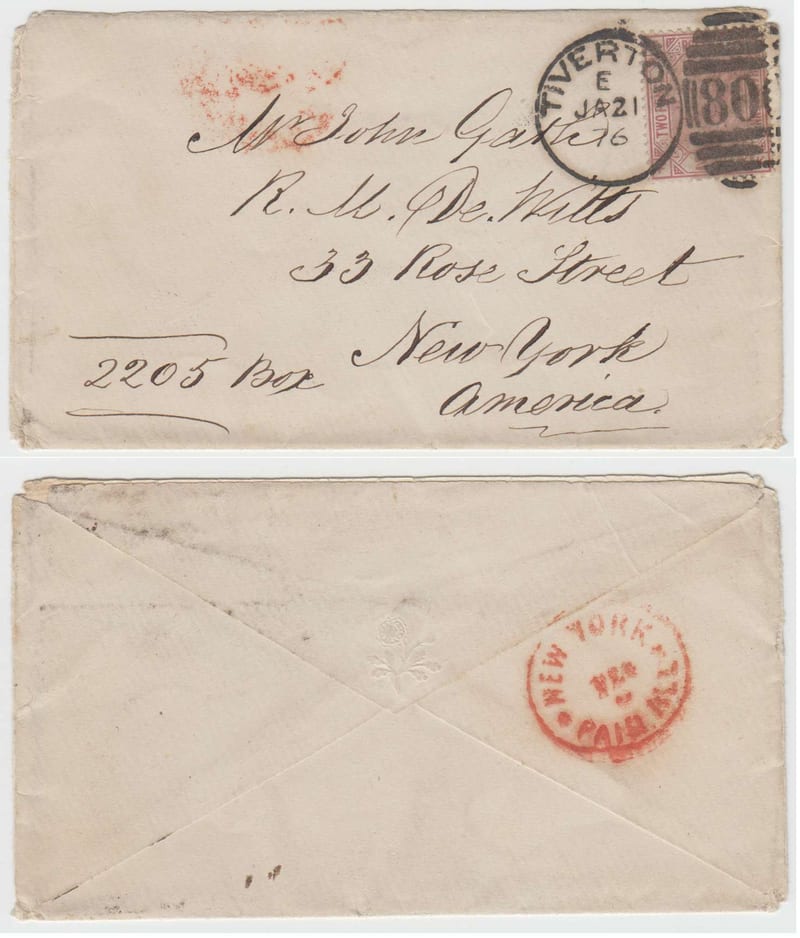 TIVERTON
E
JA21
76
TWO
80
Mr John
R. M. De. Witts
33 Rose Street
New York
America.
2205 Box
NEW YORK
PAID ALL